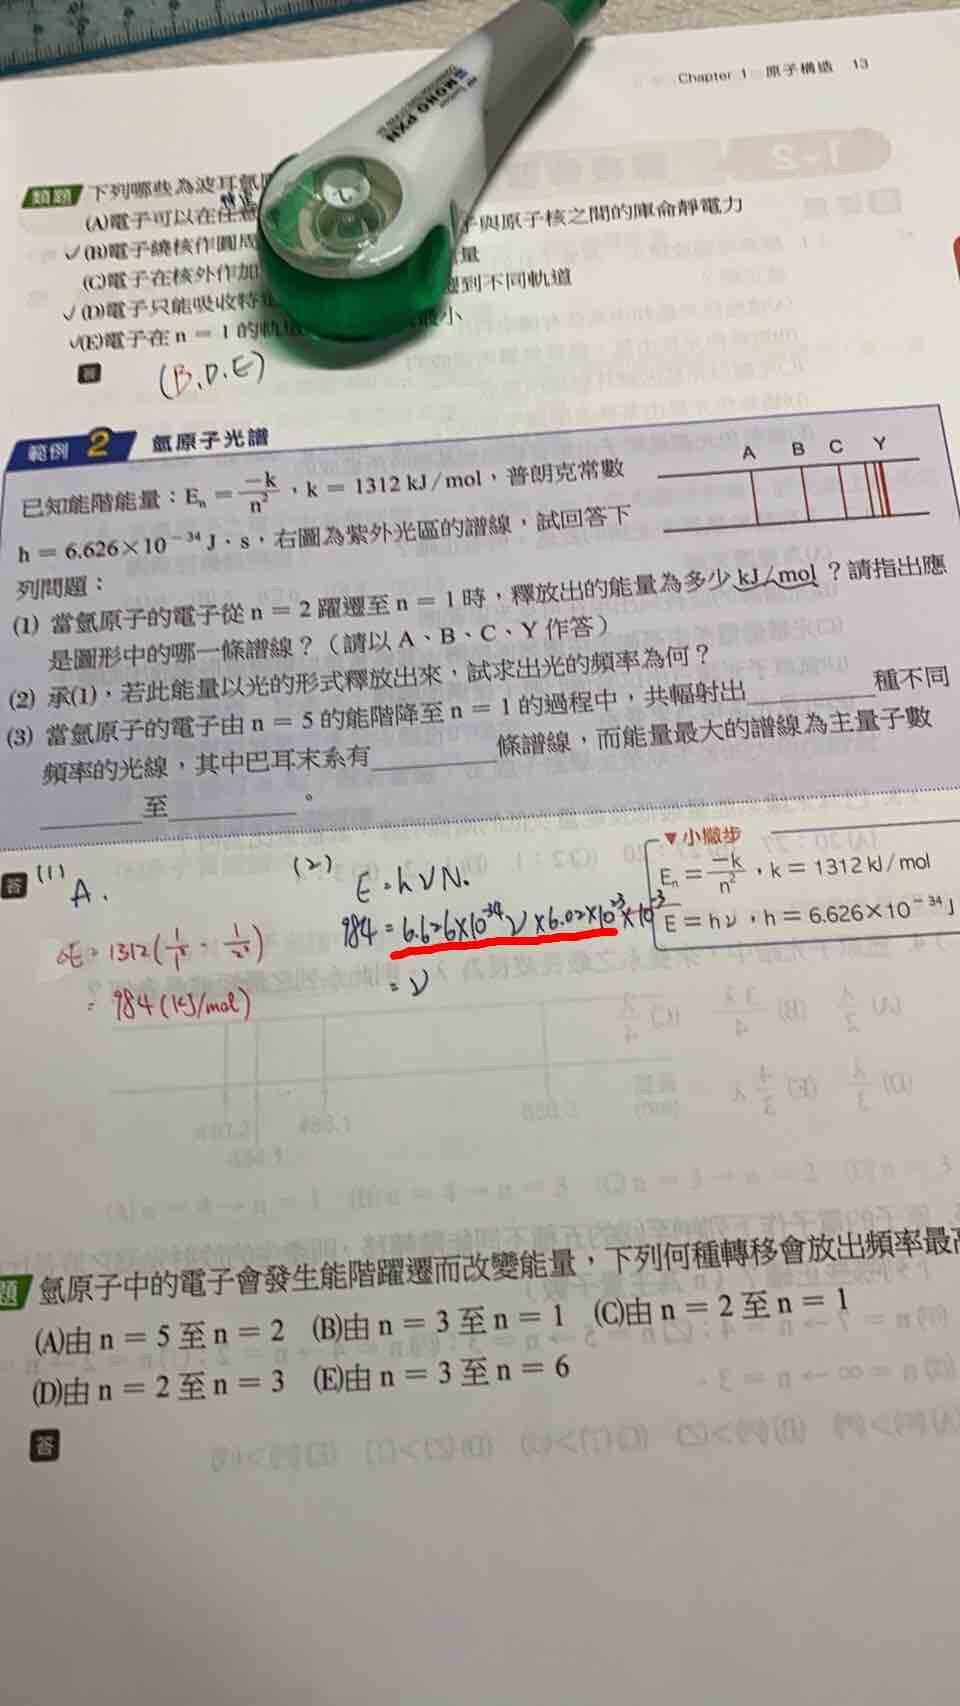 Chapter 1 原子構造 13
MONO PXN
類題 下列哪些為波耳氫
(A)電子可以在任意 與原子核之間的庫侖靜電力
✓(B)電子繞核作圓周 量
(C)電子在核外作加 到不同軌道
✓(D)電子只能吸收特 小
✓(E)電子在 n = 1 的軌
答 (B.D.E)
範例 2 氫原子光譜
已知能階能量：Eₙ = −k/n²，k = 1312 kJ/mol，普朗克常數
h = 6.626×10⁻³⁴ J．s，右圖為紫外光區的譜線，試回答下
列問題：
A B C Y
(1) 當氫原子的電子從 n = 2 躍遷至 n = 1 時，釋放出的能量為多少 kJ/mol？請指出應
是圖形中的哪一條譜線？（請以 A、B、C、Y 作答）
(2) 承(1)，若此能量以光的形式釋放出來，試求出光的頻率為何？
(3) 當氫原子的電子由 n = 5 的能階降至 n = 1 的過程中，共輻射出________種不同
頻率的光線，其中巴耳末系有________條譜線，而能量最大的譜線為主量子數
________至________。
答 (1) A.
ΔE = 1312(1/1² - 1/2²)
= 984 (KJ/mol)
(2) E = hνN.
984 = 6.626×10⁻³⁴ν×6.02×10²³×10⁻³
= ν
▼小撇步
Eₙ = −k/n²，k = 1312 kJ/mol
E = hν，h = 6.626×10⁻³⁴ J
題 氫原子中的電子會發生能階躍遷而改變能量，下列何種轉移會放出頻率最高
(A)由 n = 5 至 n = 2 (B)由 n = 3 至 n = 1 (C)由 n = 2 至 n = 1
(D)由 n = 2 至 n = 3 (E)由 n = 3 至 n = 6
答